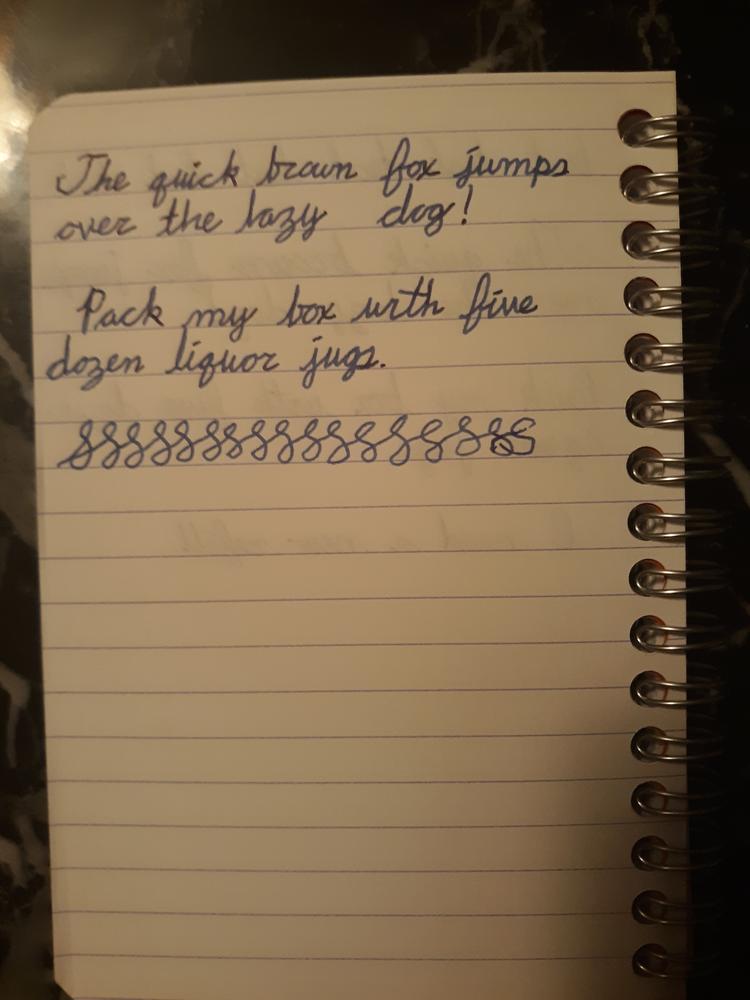 The quick brown fox jumps
over the lazy dog!
Pack my box with five
dozen liquor jugs.